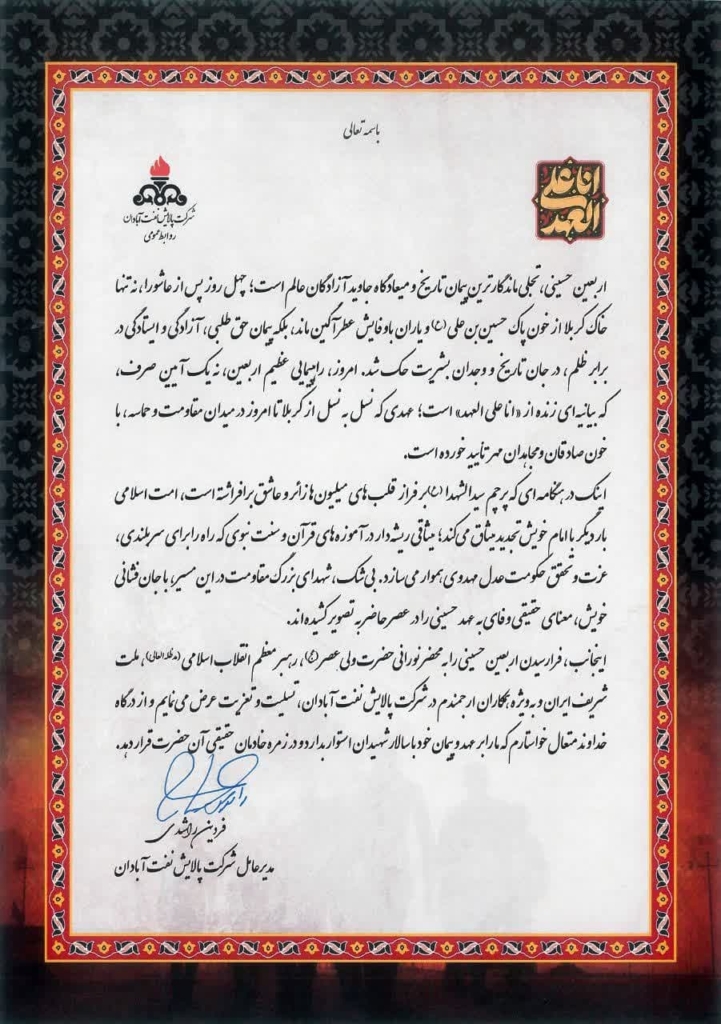 باسمه تعالی
انا علی العهد
شرکت پالایش نفت آبادان
روابط عمومی
اربعین حسینی، تجلی ماندگارترین پیمان تاریخ و میعادگاه جاوید آزادگان عالم است؛ چهل روز پس از عاشورا، نه تنها
خاک کربلا از خون پاک حسین بن علی (ع) و یاران باوفایش عطرآگین ماند، بلکه پیمان حق طلبی، آزادگی و ایستادگی در
برابر ظلم، در جان تاریخ و وجدان بشریت حک شد. امروز، راهپیمایی عظیم اربعین، نه یک آیین صرف،
که بیانیه ای زنده از «انا علی العهد» است؛ عهدی که نسل به نسل از کربلا تا امروز در میدان مقاومت و حماسه، با
خون صادقان و مجاهدان مهر تأیید خورده است.
اینک در هنگامه ای که پرچم سیدالشهدا (ع) بر فراز قلب های میلیون ها زائر و عاشق برافراشته است، امت اسلامی
بار دیگر با امام خویش تجدید میثاق می کند؛ میثاقی ریشه دار در آموزه های قرآن و سنت نبوی که راه را برای سربلندی،
عزت و تحقق حکومت عدل مهدوی هموار می سازد. بی شک، شهدای بزرگ مقاومت در این مسیر، با جان فشانی
خویش، معنای حقیقی وفای به عهد حسینی را در عصر حاضر به تصویر کشیده اند.
اینجانب، فرارسیدن اربعین حسینی را به محضر نورانی حضرت ولی عصر (عج)، رهبر معظم انقلاب اسلامی (مدظله العالی)، ملت
شریف ایران و به ویژه همکاران ارجمندم در شرکت پالایش نفت آبادان، تسلیت و تعزیت عرض می نمایم و از درگاه
خداوند متعال خواستارم که ما را بر عهد و پیمان خود با سالار شهیدان استوار بدارد و در زمره خادمان حقیقی آن حضرت قرار دهد.
فردین راشدی
مدیرعامل شرکت پالایش نفت آبادان